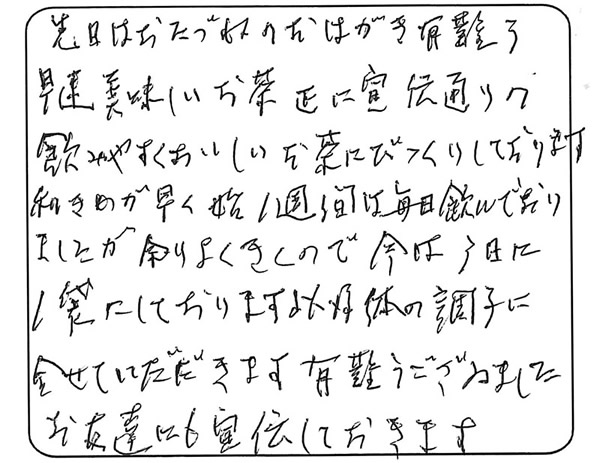 先日はおたづねのおはがき有難う
早速美味しいお茶正に宣伝通りで
飲みやすくおいしいお茶にびっくりしております
利きめが早く始1週間は毎日飲んでおり
ましたが余りよくきくので今は3日に
1袋にしております必好体の調子に
合せていただきます有難うござゐました
お友達にも宣伝しておきます